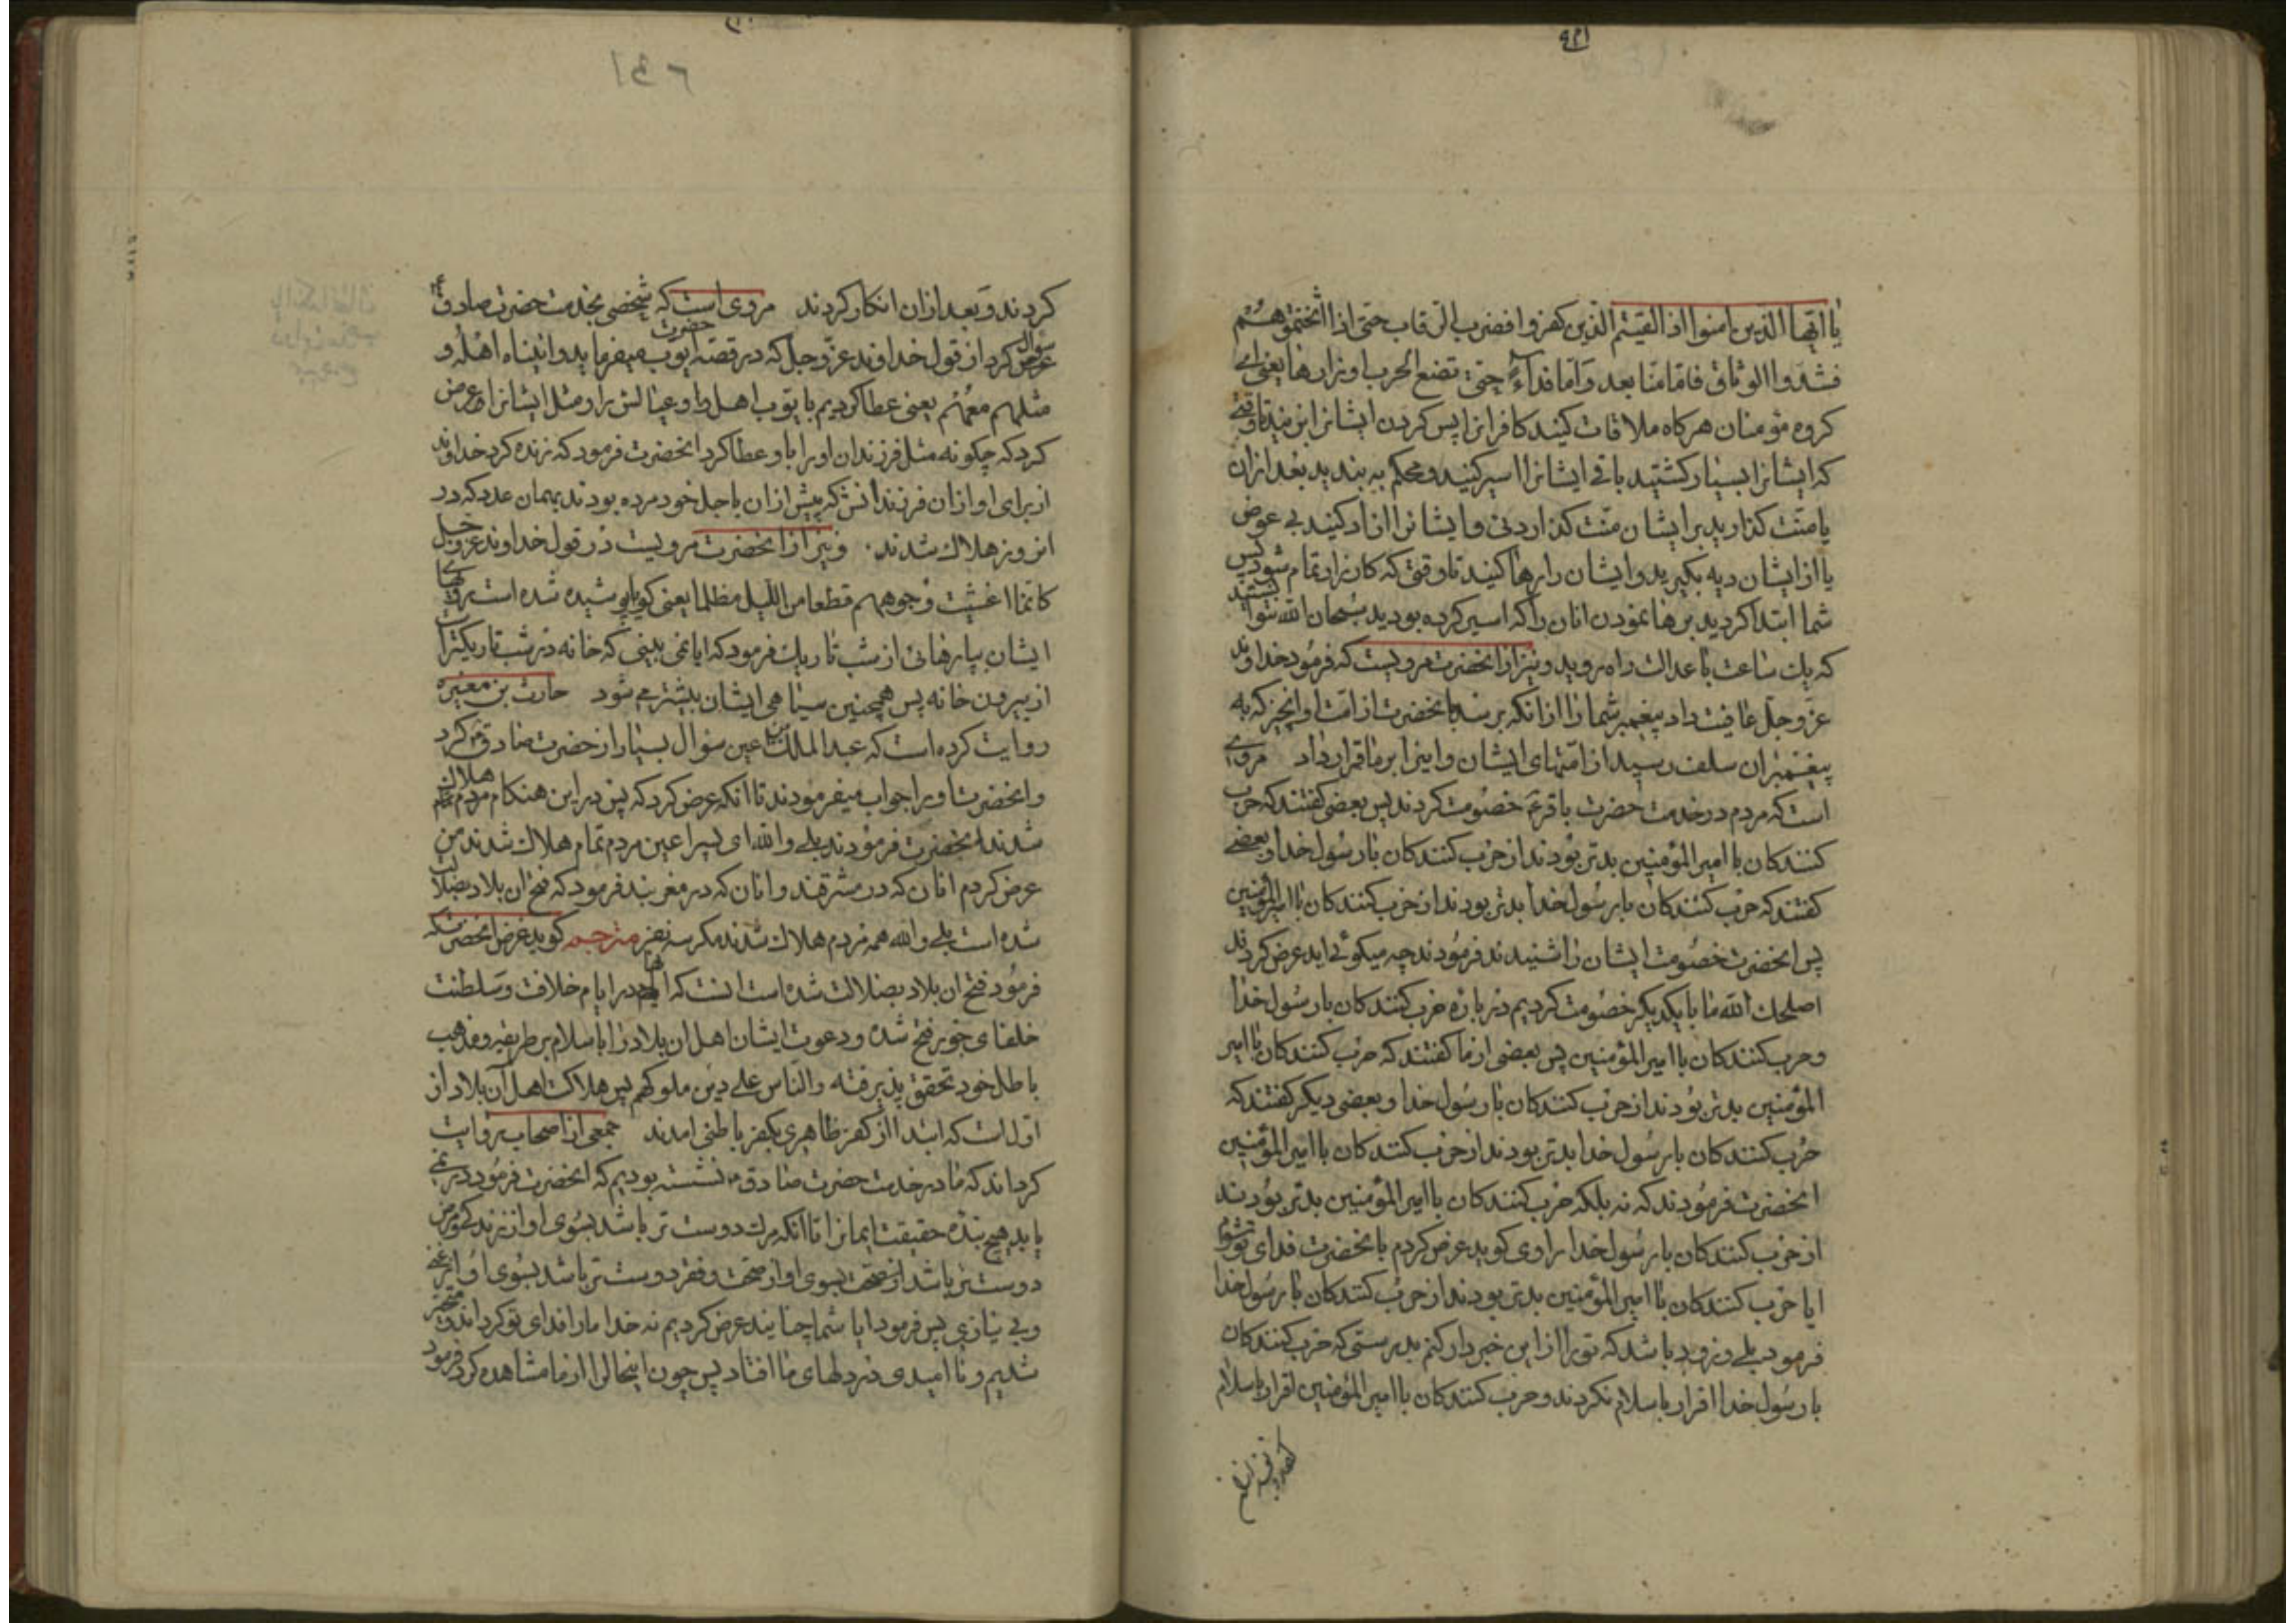 یا ایها الذین امنوا اذا لقیتم الذین کفروا فضرب الرقاب حتی اذا اثخنتموهم
فشدوا الوثاق فامّا منّا بعد وَامّا فداءً حتی تضع الحرب اوزارها یعنی ای
کروه مؤمنان هرکاه ملاقات کنید کافرانرا پس کردن ایشانرا بزنید تا وقتی
که ایشانرا بسیار کشتید باقی ایشانرا اسیر کنید و محکم به بندید بعد ازان
یا منّت کذارید بر ایشان منّت کذاردنی و ایشانرا ازاد کنید بی عوض
یا از ایشان دیه بکیرید و ایشان را رها کنید تا وقتی که کارزار تمام شود پس
شما ابتدا کردید برها نمودن انان را که اسیر کرده بودید سُبحان الله نتوانستید
که یك ساعت با عدالت راه روید و نیز از انحضرت مرویست که فرمود خداوند
عزّ و جلّ عافیت داد پیغمبر شما را از انکه برسد بانحضرت از امّت او انچیز که به
پیغمبران سلف رسید از امّتهای ایشان و اینرا بر ما قرار داد مروی
است که مردم در خدمت حضرت باقر ع خصومت کردند پس بعضی کفتند که حرب
کنندکان با امیرالمؤمنین بدتر بودند از حرب کنندکان با رسُول خدا و بعضی
کفتند که حرب کنندکان با رسُول خدا بدتر بودند از حرب کنندکان با امیرالمؤمنین
پس انحضرت خصُومت ایشان را شنیدند فرمُودند چه میکوئید عرض کردند
اصلحك الله ما با یکدیکر خصُومت کردیم در باره حرب کنندکان با رسُول خدا
و حرب کنندکان با امیرالمؤمنین پس بعضی از ما کفتند که حرب کنندکان با امیر
المؤمنین بدتر بودند از حرب کنندکان با رسُول خدا و بعضی دیکر کفتند که
حرب کنندکان با رسُول خدا بدتر بودند از حرب کنندکان با امیرالمؤمنین
انحضرت فرمُودند که نه بلکه حرب کنندکان با امیرالمؤمنین بدتر بُودند
از حرب کنندکان با رسُول خدا راوی کوید عرض کردم بانحضرت فدای تو شوم
ایا حرب کنندکان با امیرالمؤمنین بدتر بودند از حرب کنندکان با رسُول خدا
فرمود بلی و زود باشد که تو را از این خبردار کنم بدرستی که حرب کنندکان
با رسُول خدا اقرار باسلام نکردند و حرب کنندکان با امیرالمؤمنین اقرار باسلام
کردند و بعد ازان انکار کردند مروی است که شخصی بخدمت حضرت صادق ع
سؤال کرد از قول خداوند عزّ و جل که در قصّه حضرت ایّوب میفرماید و اتیناه اهلُه و
مثلهم معَهُم یعنی عطا کردیم بایّوب اهل او و عیالش را و مثل ایشانرا عرض
کرد که چکونه مثل فرزندان او را باو عطا کرد انحضرت فرمود که زنده کرد خداوند
از برای او ازان فرزندانش که پیش ازان باجل خود مرده بودند بهمان عدد که در
انروز هلاك شدند و نیز از انحضرت مرویست در قول خداوند عزّ و جل
کانّما اغشیت وجوههم قطعا من اللیل مظلما یعنی کویا پوشیده شده است رویهای
ایشان بپارهائی از شب تاریك فرمود که ایا نمی بینی که خانه در شب تاریکتر است
از بیرون خانه پس همچنین سیاهی ایشان بیشتر می شود حارث بن مغیره
روایت کرده است که عبد الملك بن اعین سؤال بسیار از حضرت صادق ع کرد
و انحضرت او را جواب میفرمودند تا انکه عرض کرد که پس در این هنکام مردم هلاك
شدند انحضرت فرمُودند بلی والله ای پسر اعین مردم تمام هلاك شدند من
عرض کردم انان که در مشرقند و انان که در مغربند فرمود که فتح ان بلاد بضلالت
شده است بلی والله همه مردم هلاك شدند مکر سه نفر مترجم کوید غرض انحضرت که
فرمُود فتح ان بلاد بضلالت شده است انست که انها در ایام خلافت و سَلطنت
خلفای جور فتح شده و دعوت ایشان اهل ان بلاد را باسلام بر طریقه و مذهب
باطل خود تحقق پذیرفته والناس علی دین ملوکهم پس هلاکت اهل آن بلاد از
اول است که ابتدا از کفر ظاهری بکفر باطنی امدند جمعی از اصحاب روایت
کرده‌اند که ما در خدمت حضرت صادق ع نشسته بودیم که انحضرت فرمُود در نمی
یابد هیچ بنده حقیقت ایمانرا تا انکه مرك دوست تر باشد بسُوی او از زندکی و مرض
دوست تر باشد بسوی او از صحّت و فقر دوست تر باشد بسُوی او از غنی
و بی نیازی پس فرمود ایا شما چنانید عرض کردیم نه خدا ما را فدای تو کرداند و متحیر
شدیم و نا امیدی در دلهای ما افتاد پس چون اینحال را از ما مشاهده کرد فرمود